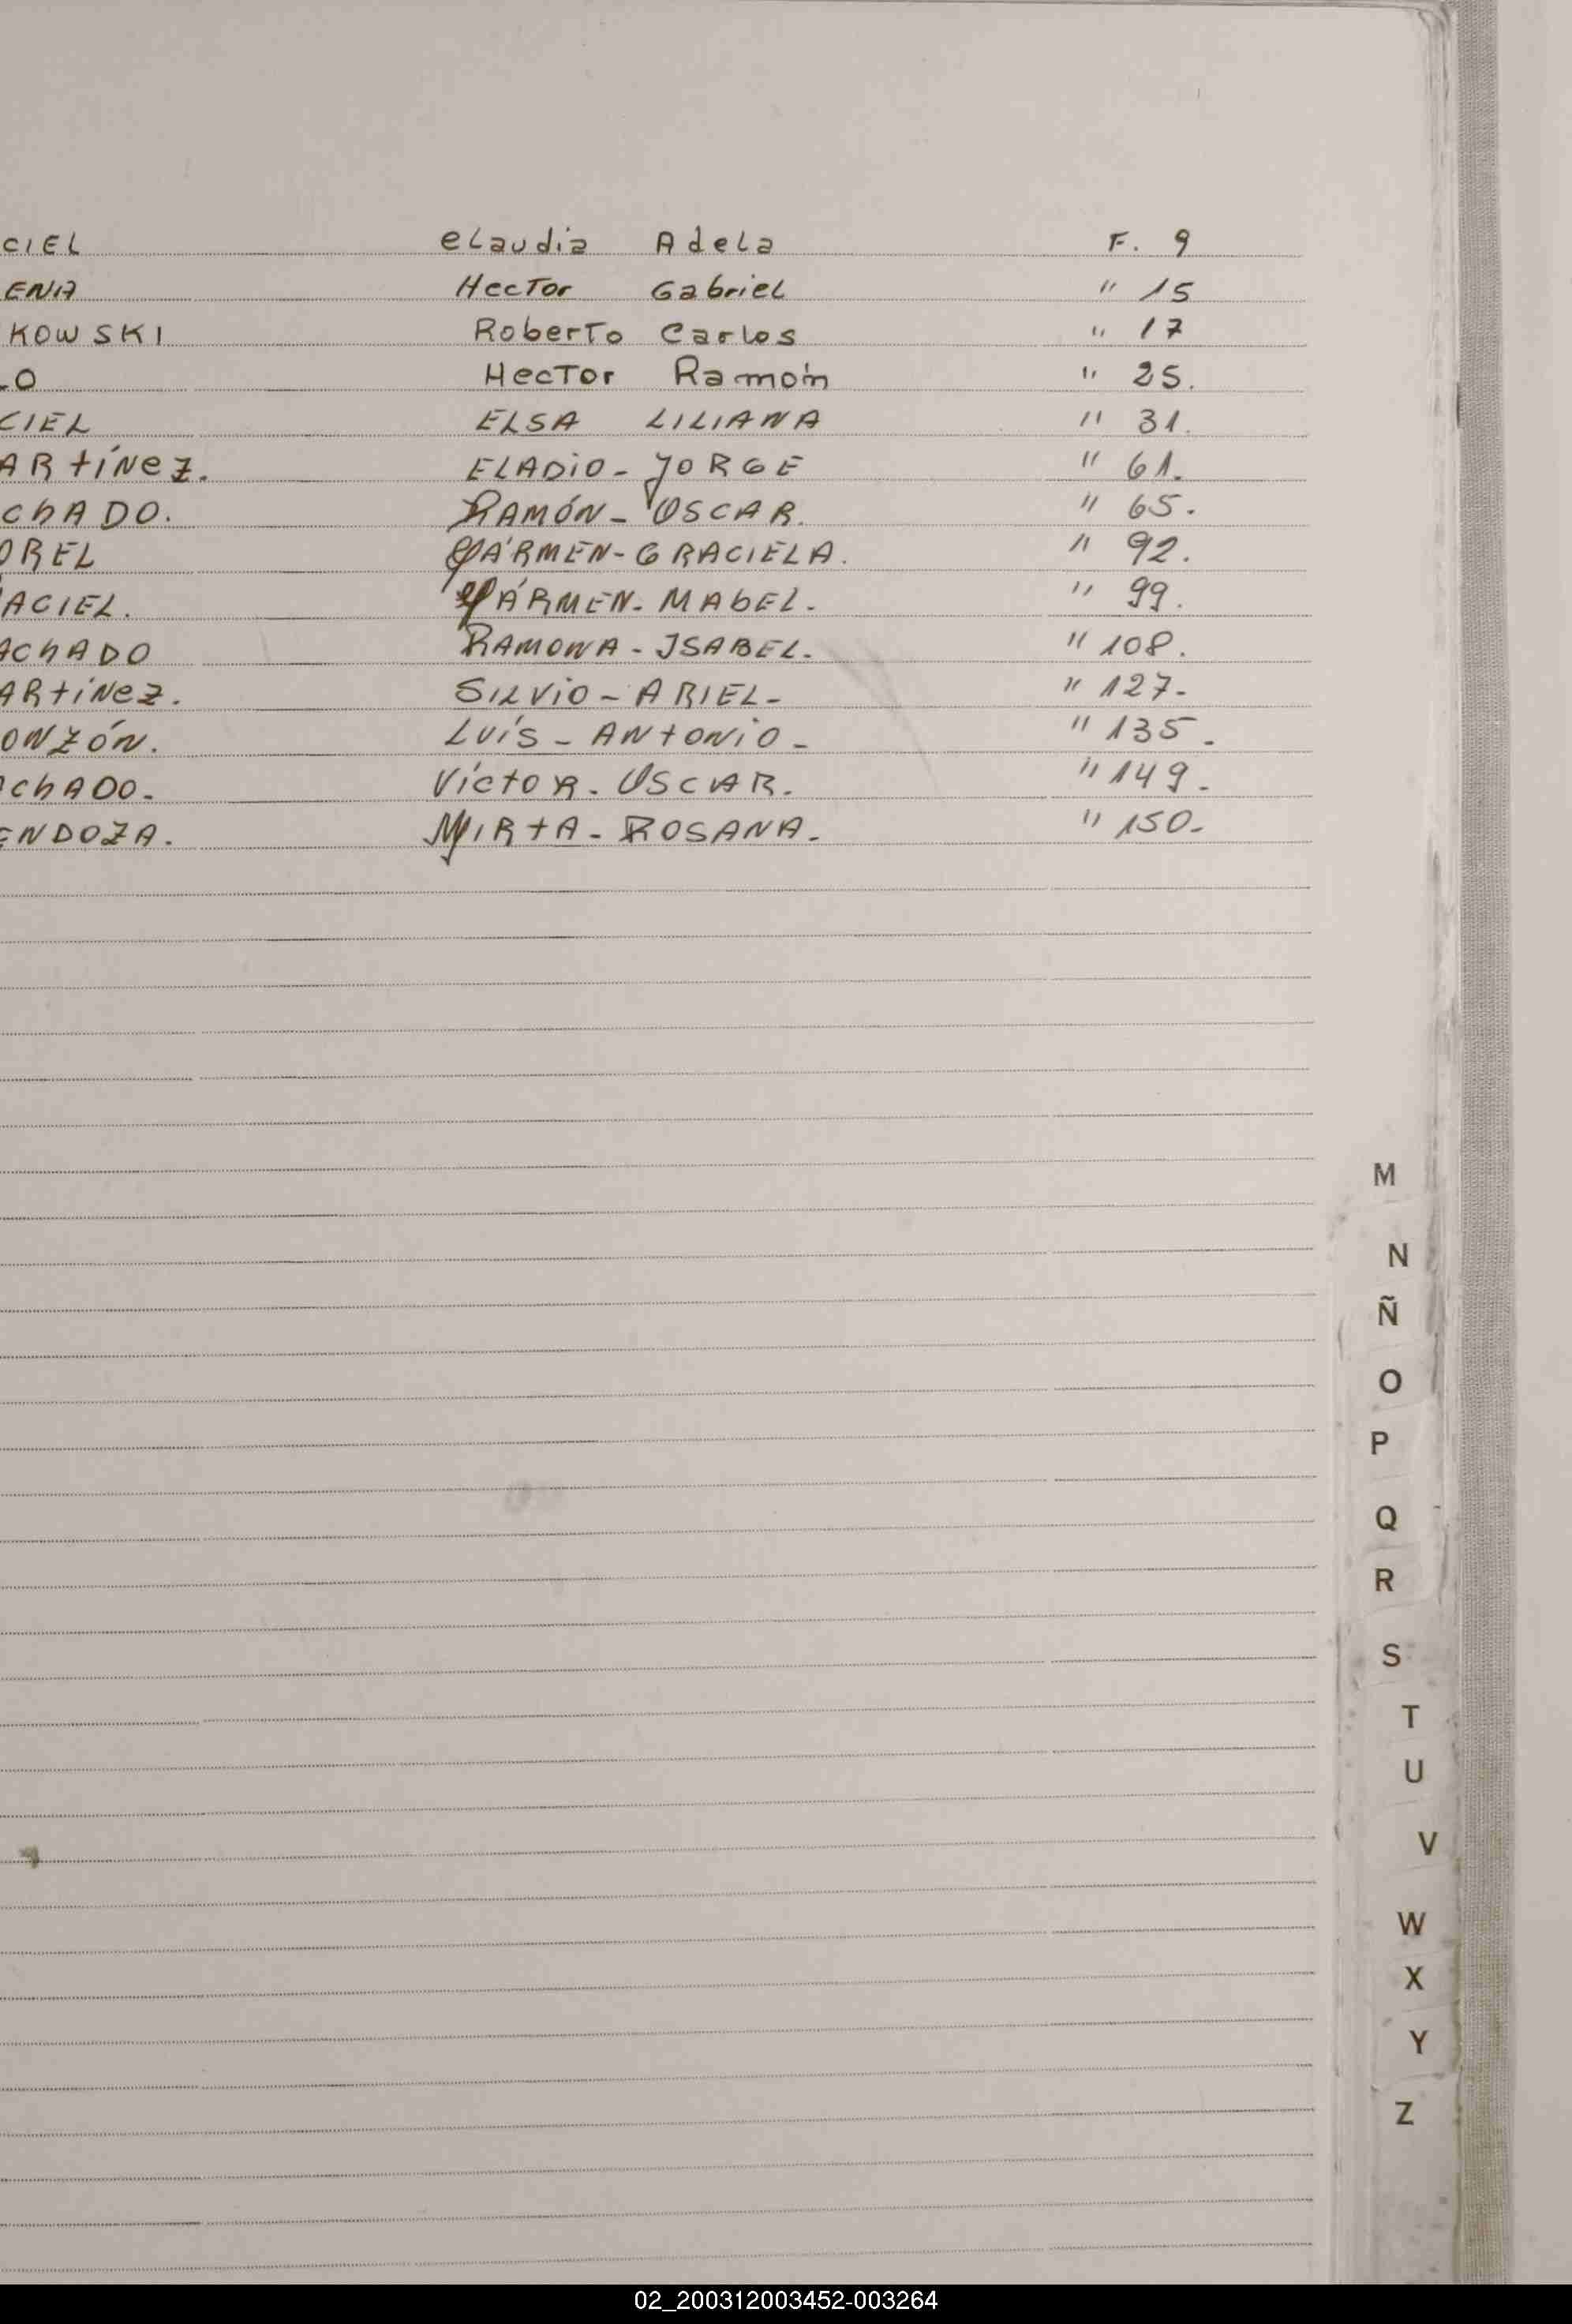 CIEL eLaudia Adela F. 9
ENA HecTor Gabriel " 15
KOWSKI RoberTo CarLos " 17
LO HecTor Ramón " 25.
CIEL ELSA LILIANA " 31.
ARtíNez. ELADiO - JORGE " 61.
ChADO. RAMÓN - OSCAR. " 65.
OREL CÁRMEN - GRACIELA. " 92.
ACIEL. CÁRMEN - MAbEL. " 99.
AChADO RAMONA - ISABEL. " 108.
ARtíNez. SILViO - ARIEL - " 127-
ONZÓN. LUíS - ANtONiO - " 135.
AChADO - VíctOR. OSCAR. " 149.
ENDOZA. MIRtA - ROSANA. " 150-
M
N
Ñ
O
P
Q
R
S
T
U
V
W
X
Y
Z
02_200312003452-003264